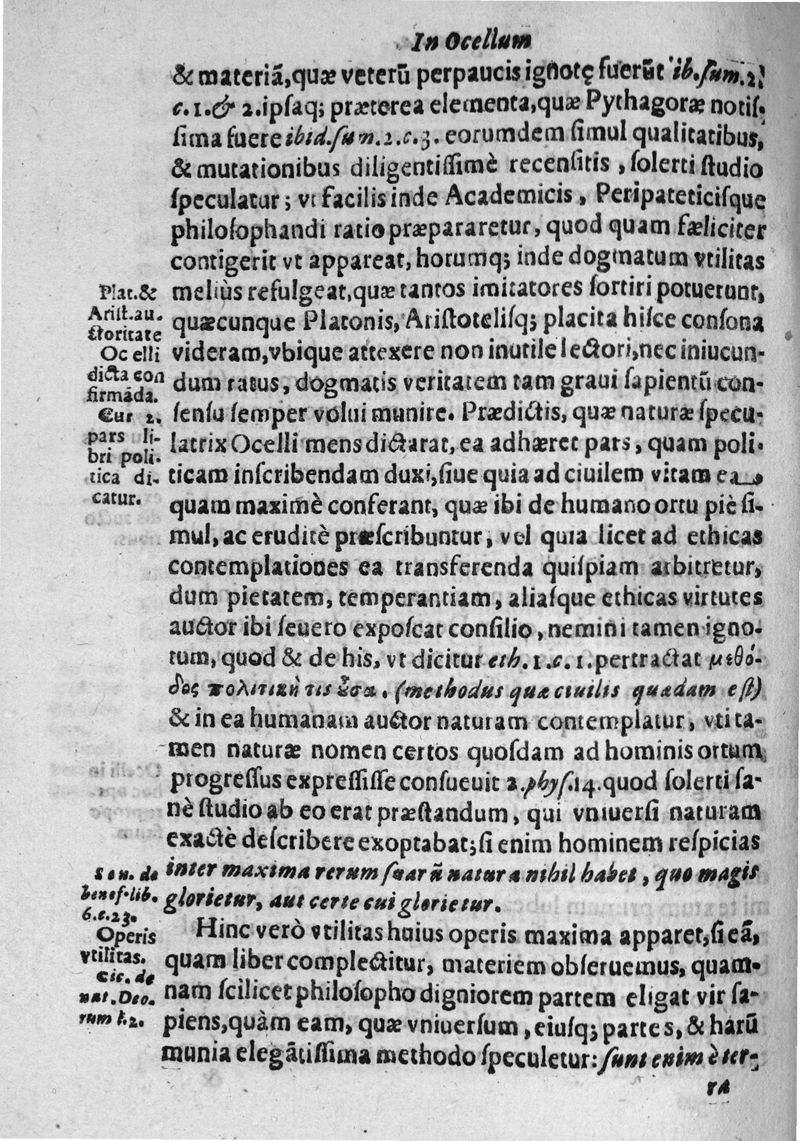 In Ocellum
& materiã,quæ veterũ perpaucis ignotę fuerũt ib.ſum.2.
c.1.& 2.ipſaq; præterea elementa,quæ Pythagoræ notiſ-
ſima fuere ibid.ſum.2.c.3. eorumdem ſimul qualitatibus,
& mutationibus diligentiſſimè recenſitis , ſolerti ſtudio
ſpeculatur ; vt facilis inde Academicis , Peripateticiſque
philoſophandi ratio præpararetur, quod quam fæliciter
contigerit vt appareat, horumq; inde dogmatum vtilitas
Plat.&
meliùs refulgeat,quæ tantos imitatores ſortiri potuerunt,
Ariſt.au.
ctoritate
quæcunque Platonis, Ariſtoteliſq; placita hiſce conſona
Ocelli
videram,vbique attexere non inutile lectori,nec iniucun-
dicta con
firmãda.
dum ratus, dogmatis veritatem tam graui ſapientũ con-
Cur 2.
ſenſu ſemper volui munire. Prædictis, quæ naturæ ſpecu-
pars li-
bri poli-
latrix Ocelli mens dictarat, ea adhæret pars , quam poli-
tica di-
ticam inſcribendam duxi,ſiue quia ad ciuilem vitam ea ,
catur.
quam maximè conferant, quæ ibi de humano ortu piè ſi-
mul, ac eruditè præſcribuntur, vel quia licet ad ethicas
contemplationes ea transferenda quiſpiam arbitretur,
dum pietatem, temperantiam, aliaſque ethicas virtutes
auctor ibi ſeuero expoſcat conſilio , nemini tamen igno-
tum, quod & de his, vt dicitur eth.1.c.1.pertractat μεθό-
δος πολιτικὴ τις ἐσα. (methodus quæ ciuilis quædam eſt)
& in ea humanam auctor naturam contemplatur, vti ta-
men naturæ nomen certos quoſdam ad hominis ortum
progreſſus expreſſiſſe conſueuit 2.phyſ.14.quod ſolerti ſa-
nè ſtudio ab eo erat præſtandum, qui vniuerſi naturam
exactè deſcribere exoptabat;ſi enim hominem reſpicias
Sen. de
inter maxima rerum ſuarũ natura nihil habet , quo magis
benef.lib.
6.c.23.
glorietur, aut certe cui glorietur.
Operis
vtilitas.
Hinc verò vtilitas huius operis maxima apparet,ſi eã,
quam liber complectitur, materiem obſeruemus, quam-
Cic. de
nat.Deo.
nam ſcilicet philoſopho digniorem partem eligat vir ſa-
rum l.2.
piens,quàm eam, quæ vniuerſum , eiuſq; partes, & harũ
munia elegãtiſſima methodo ſpeculetur: ſunt enim è ter-
ra